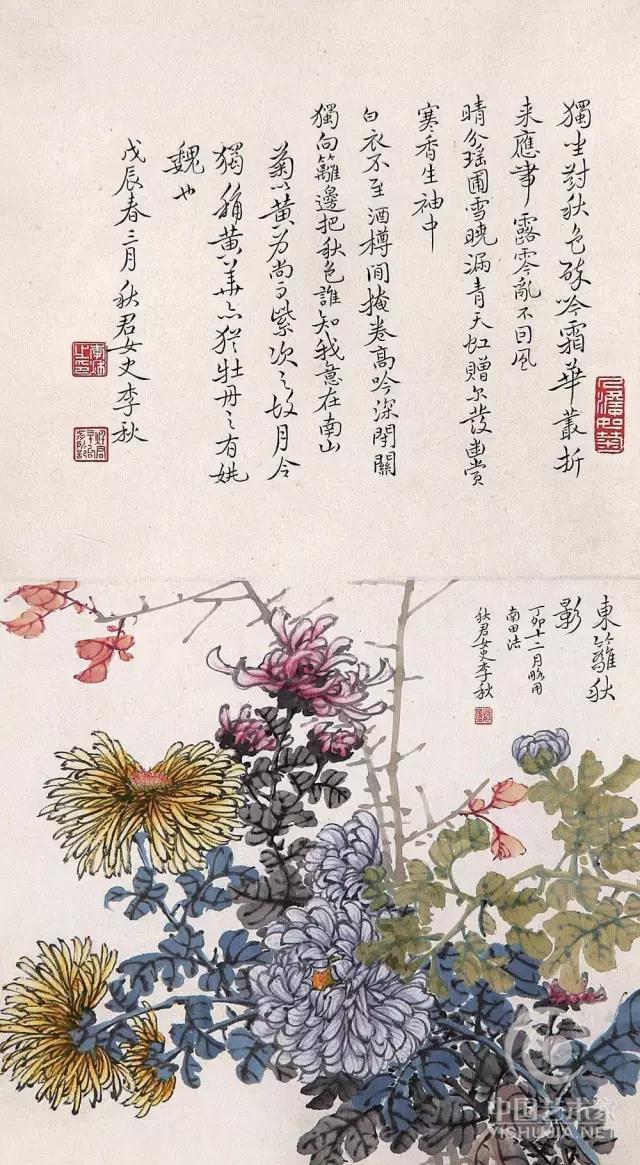 獨坐對秋色吟霜華叢折
来應帶露零亂不因風
晴分瑤圃雪曉漏青天虹贈尔發幽賞
寒香生袖中
白衣不至酒樽間掩卷高吟深閉關
獨向籬邊把秋色誰知我意在南山
菊以黃为尚而紫次之故月令
獨稱黃華亦猶牡丹之有姚
魏也
戊辰春三月秋君女史李秋
李秋之印
人澹如菊
東籬秋
影
丁卯十二月略用
南田法
秋君女史李秋
中国艺术家
YISHUJIA.NET